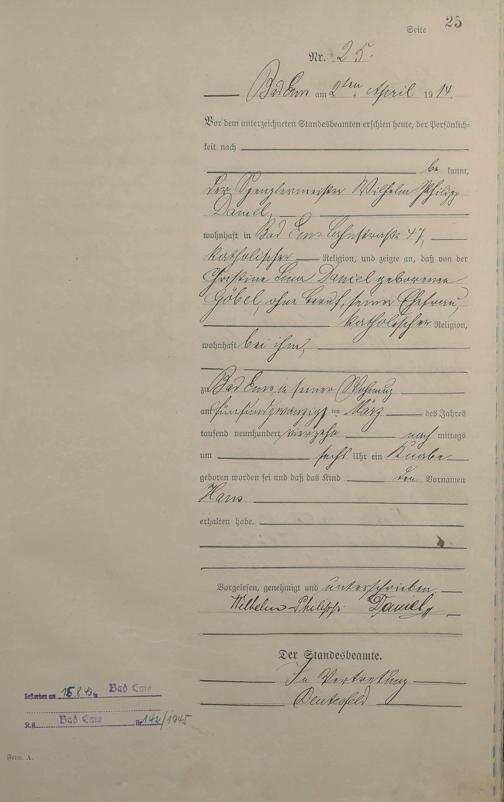 Seite 25
Nr. 25.
Bad Ems am 2ten April 1914.
Vor dem unterzeichneten Standesbeamten erschien heute, der Persönlich-
keit nach
be kannt,
der Spenglermeister Wilhelm Philipp
Daniel,
wohnhaft in Bad Ems Lahnstraße 47,
katholischer Religion, und zeigte an, daß von der
Christine Daniel geborenen
Göbel, ohne Beruf, seiner Ehefrau,
katholischer Religion,
wohnhaft bei ihm,
zu Bad Ems in seiner Wohnung
am fünfundzwanzigsten März des Jahres
tausend neunhundert vierzehn nach mittags
um sechs Uhr ein Knabe
geboren worden sei und daß das Kind den Vornamen
Hans
erhalten habe.
Vorgelesen, genehmigt und unterschrieben.
Wilhelm Philipp Daniel
Der Standesbeamte.
In Vertretung
Gestorben am in Bad Ems
St.A. Bad Ems Nr. 142/1945
Form. A.